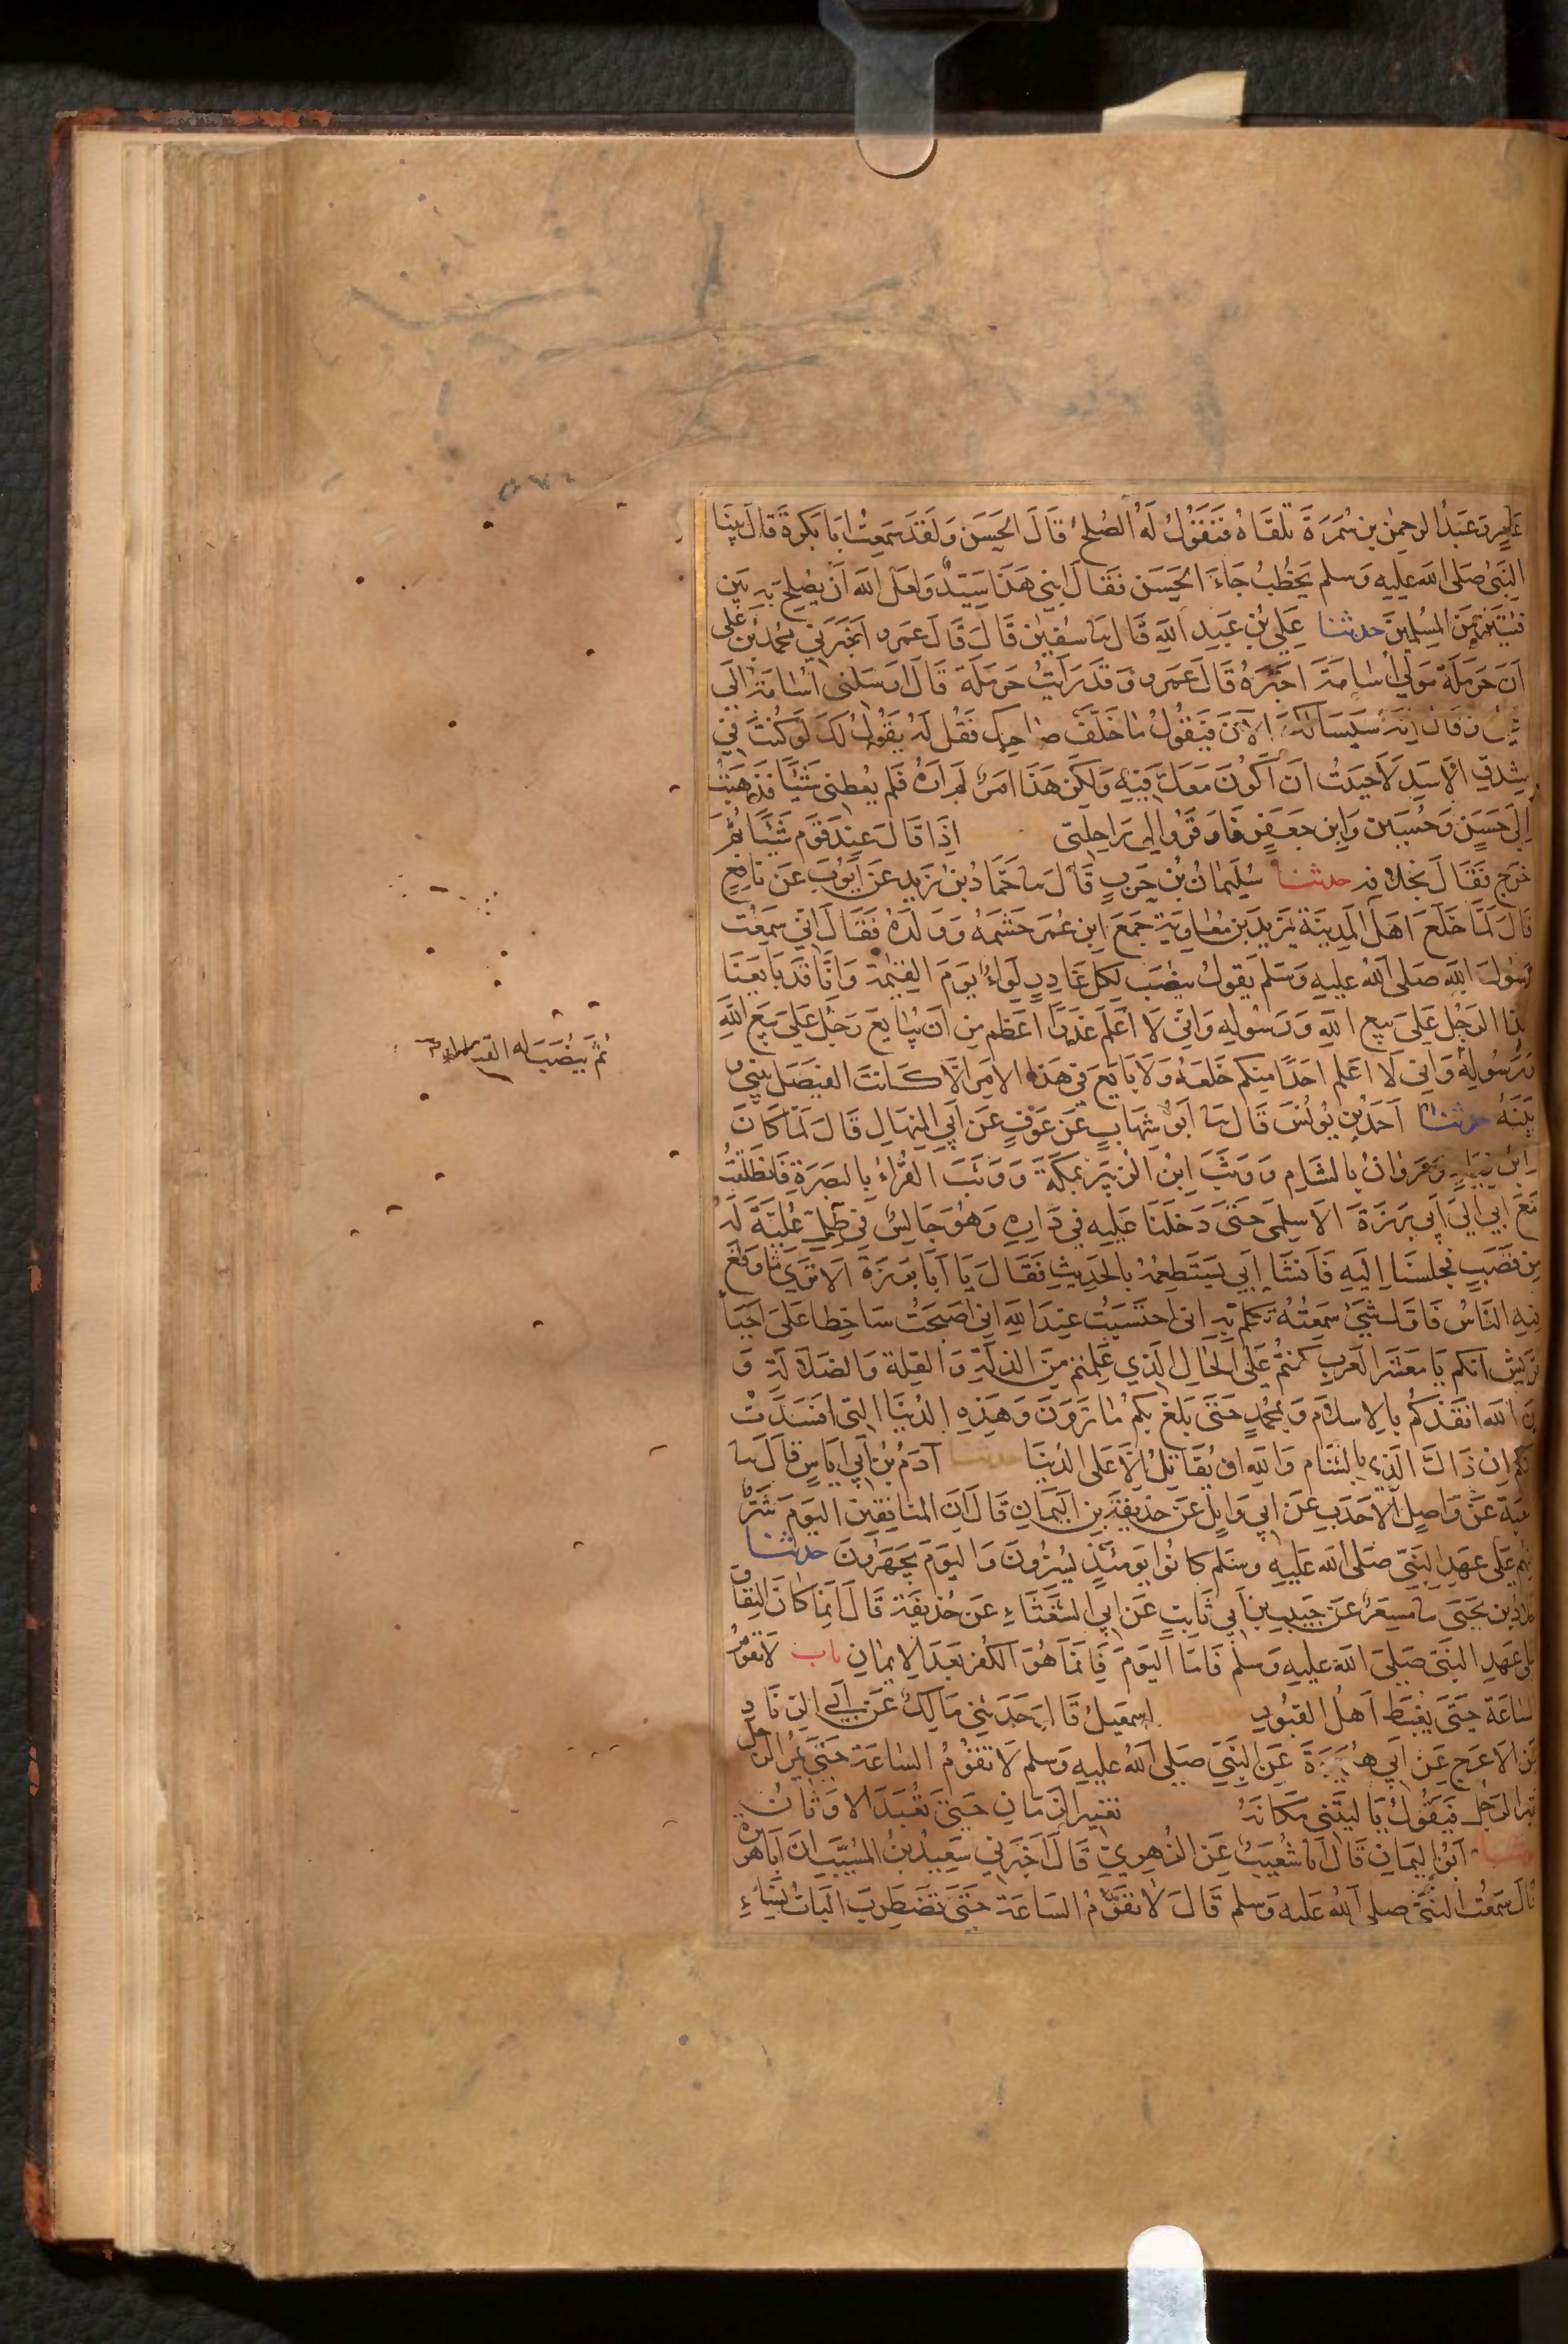 عامر وعبد الرحمن بن سمرة تلقاه فنقول له الصلح قال الحسن ولقد سمعت ابا بكرة قال بينا
النبي صلى الله عليه وسلم يخطب جاء الحسن فقال ابني هذا سيد ولعل الله ان يصلح به بين
فئتين من المسلمين حدثنا علي بن عبد الله قال سا سفين قال قال عمرو اخبرني محمد بن علي
ان حرملة مولى اسامة اخبره قال عمرو وقد رايت حرملة قال ارسلني اسامة الى
علي وقال انه سيسالك الان فيقول ما خلف صاحبك فقل له يقول لك لو كنت في
شدق الاسد لاحببت ان اكون معك فيه ولكن هذا امر لم اره فلم يعطني شيئا فذهبت
الى حسن وحسين وابن جعفر فاوقروا لي راحلتي اذا قال عند قوم شيئا ثم
خرج فقال بخلافه حدثنا سليمان بن حرب قال سا حماد بن زيد عن ايوب عن نافع
قال لما خلع اهل المدينة يزيد بن معاوية جمع ابن عمر حشمه وولده فقال اني سمعت
رسول الله صلى الله عليه وسلم يقول ينصب لكل غادر لواء يوم القيمة وانا قد بايعنا
هذا الرجل على بيع الله ورسوله واني لا اعلم غدرا اعظم من ان يبايع رجل على بيع الله
ورسوله واني لا اعلم احدا منكم خلعه ولا بايع في هذا الامر الا كانت الفيصل بيني و
بينه حدثنا احمد بن يونس قال سا ابو شهاب عن عوف عن ابي المنهال قال لما كان
ابن زياد ومروان بالشام ووثب ابن الزبير بمكة ووثب القراء بالبصرة فانطلقت
مع ابي الى ابي برزة الاسلمي حتى دخلنا عليه في داره وهو جالس في ظل علية له
من قصب فجلسنا اليه فانشا ابي يستطعمه بالحديث فقال يا ابا برزة الا ترى ما وقع
فيه الناس فاول شيء سمعته تكلم به اني احتسبت عند الله اني اصبحت ساخطا على احياء
قريش انكم يا معشر العرب كنتم على الحال الذي علمتم من الذلة والقلة والضلالة و
ان الله انقذكم بالاسلام وبمحمد حتى بلغ بكم ما ترون وهذه الدنيا التي افسدت
بينكم ان ذاك الذي بالشام والله ان يقاتل الا على الدنيا حدثنا ادم بن ابي اياس قال سا
شعبة عن واصل الاحدب عن ابي وايل عن حذيفة بن اليمان قال ان المنافقين اليوم شر
منهم على عهد النبي صلى الله عليه وسلم كانوا يومئذ يسرون واليوم يجهرون حدثنا
خلاد بن يحيى سا مسعر عن حبيب بن ابي ثابت عن ابي الشعثاء عن حذيفة قال انما كان النفاق
على عهد النبي صلى الله عليه وسلم فاما اليوم فانما هو الكفر بعد الايمان باب لا تقوم
الساعة حتى يغبط اهل القبور اسمعيل قال حدثني مالك عن ابي الزناد
عن الاعرج عن ابي هريرة عن النبي صلى الله عليه وسلم لا تقوم الساعة حتى يمر الرجل
بقبر الرجل فيقول يا ليتني مكانه تغير الزمان حتى تعبد الاوثان
حدثنا ابو اليمان قال انا شعيب عن الزهري قال اخبرني سعيد بن المسيب ان ابا هريرة
قال سمعت النبي صلى الله عليه وسلم قال لا تقوم الساعة حتى تضطرب اليات نساء
ثم ينصب له القتال